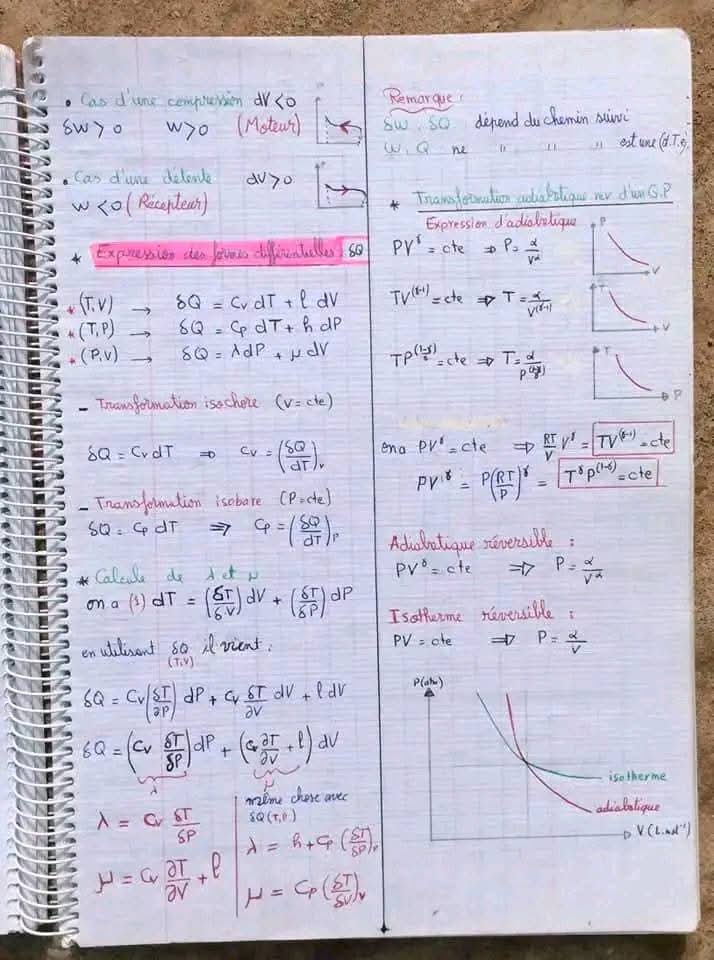 • Cas d'une compression dV < 0
δW > 0 W > 0 (Moteur)
• Cas d'une détente dV > 0
W < 0 (Récepteur)
* Expression des formes différentielles δQ
* (T,V) → δQ = Cv dT + l dV
* (T,P) → δQ = Cp dT + h dP
* (P,V) → δQ = λ dP + μ dV
- Transformation isochore (V = cte)
δQ = Cv dT ⇒ Cv = (δQ/dT)v
- Transformation isobare (P = cte)
δQ = Cp dT ⇒ Cp = (δQ/dT)P
* Calcule de λ et μ
on a (1) dT = (δT/δV) dV + (δT/δP) dP
en utilisant δQ (T,V) il vient :
δQ = Cv (δT/∂P) dP + Cv δT/∂V dV + l dV
δQ = (Cv δT/δP) dP + (Cv ∂T/∂V + l) dV
λ μ
λ = Cv δT/δP
μ = Cv ∂T/∂V + l
même chose avec
δQ (T,P)
λ = h + Cp (δT/δP)v
μ = Cp (δT/δV)v
Remarque :
δW, δQ dépend du chemin suivi
W, Q ne " " " est une (d.T.e)
* Transformation adiabatique rev d'un G.P
Expression d'adiabatique
PV^γ = cte ⇒ P = α/V^α
P
V
TV^(γ-1) = cte ⇒ T = α/V^(γ-1)
T
V
TP^(1-γ/γ) = cte ⇒ T = α/P^(1-γ/γ)
T
P
on a PV^γ = cte ⇒ RT/V V^γ = TV^(γ-1) = cte
PV^γ = P(RT/P)^γ = T^γ P^(1-γ) = cte
Adiabatique réversible :
PV^γ = cte ⇒ P = α/V^α
Isotherme réversible :
PV = cte ⇒ P = α/V
P(atm)
isotherme
adiabatique
V (L.mol⁻¹)